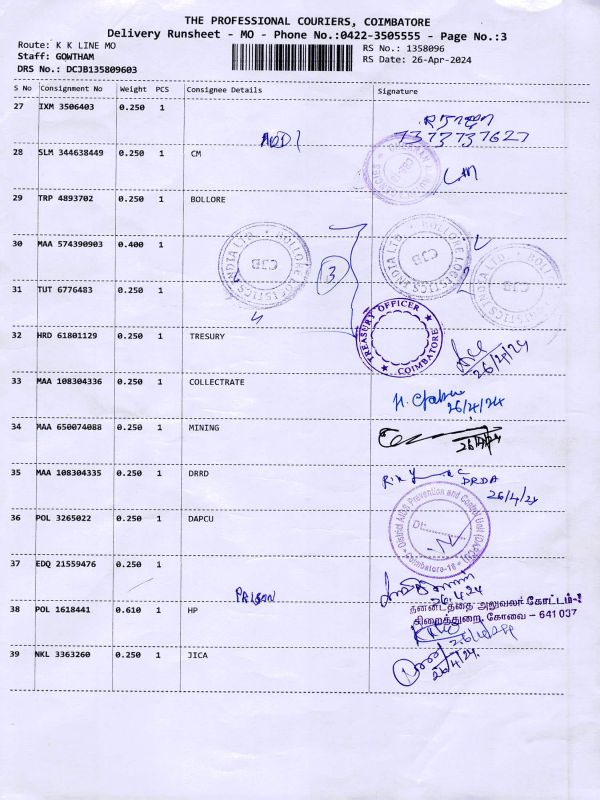 THE PROFESSIONAL COURIERS, COIMBATORE
Delivery Runsheet - MO - Phone No.:0422-3505555 - Page No.:3
Route: K K LINE MO
RS No.: 1358096
Staff: GOWTHAM
RS Date: 26-Apr-2024
DRS No.: DCJB135809603
S No Consignment No Weight PCS Consignee Details Signature
27 IXM 3506403 0.250 1
7373737627
28 SLM 344638449 0.250 1 CM
CM
29 TRP 4893702 0.250 1 BOLLORE
BOLLORE LOGISTICS INDIA LTD
CJB
BOLLORE LOGISTICS INDIA LTD
CJB
30 MAA 574390903 0.400 1
3
31 TUT 6776483 0.250 1
TREASURY OFFICER
COIMBATORE
32 HRD 61801129 0.250 1 TRESURY
26/4/24
33 MAA 108304336 0.250 1 COLLECTRATE
26/4/24
34 MAA 650074088 0.250 1 MINING
26/4/24
35 MAA 108304335 0.250 1 DRRD
DRDA
26/4/24
36 POL 3265022 0.250 1 DAPCU
District AIDS Prevention and Control Unit (DAPCU)
Dt:
Coimbatore-18
37 EDQ 21559476 0.250 1
26.4.24
PRISON
நன்னடத்தை அலுவலர் கோட்டம்-2
சிறைத்துறை, கோவை - 641 037
38 POL 1618441 0.610 1 HP
26/4/24
39 NKL 3363260 0.250 1 JICA
26/4/24